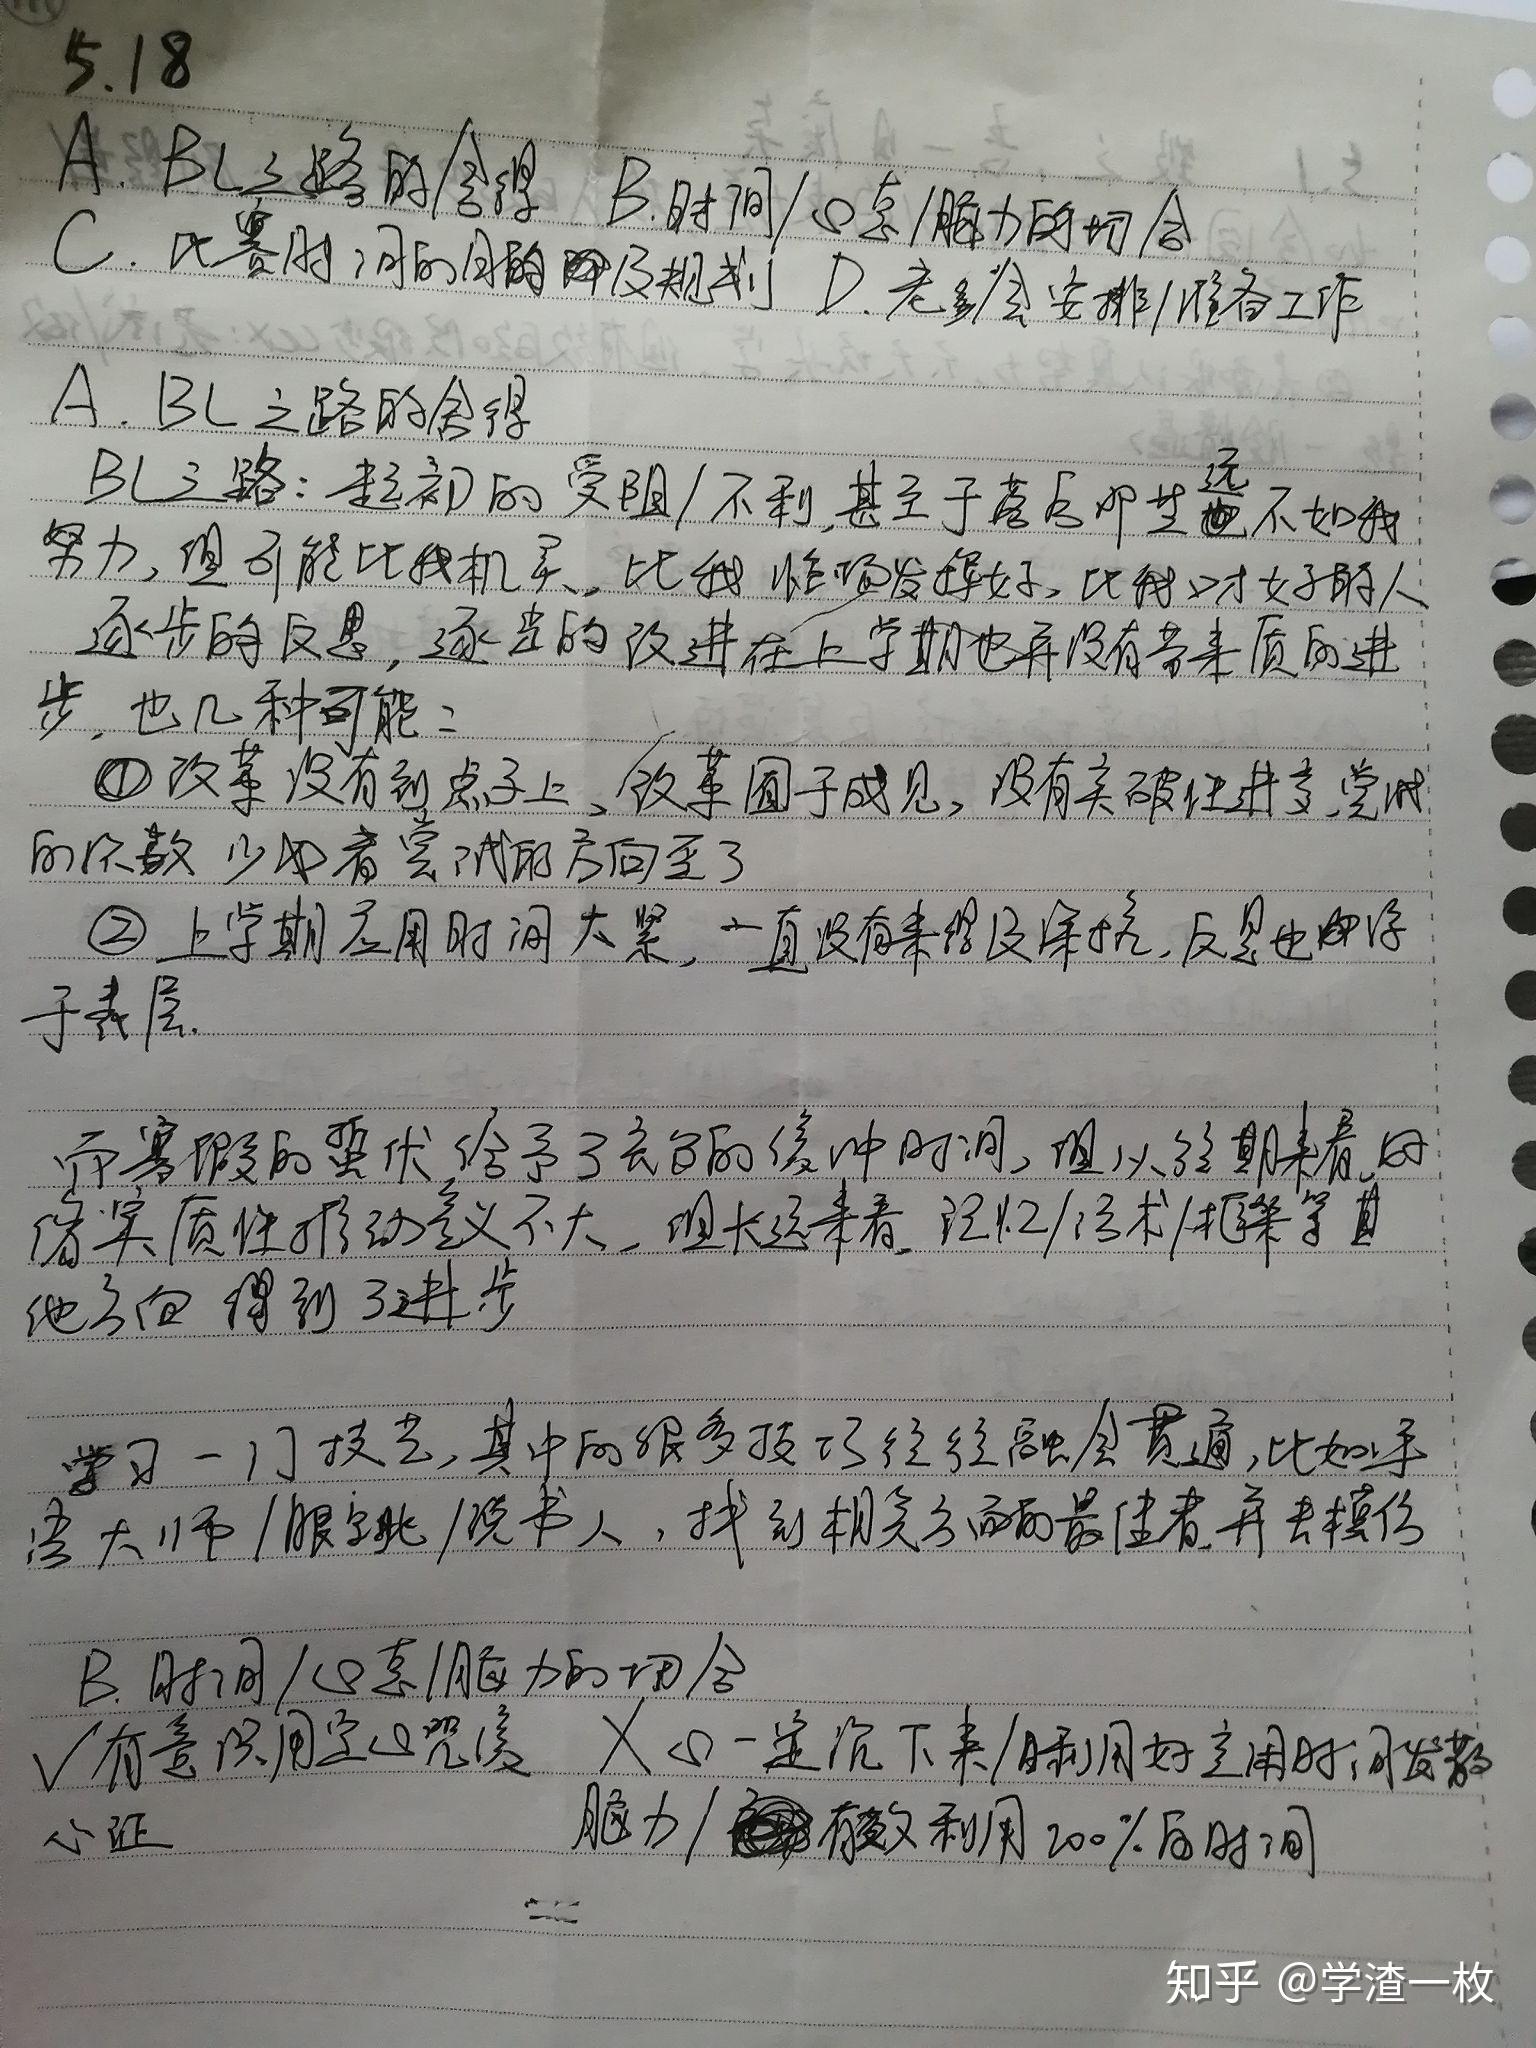 5.18
A. BL之路的舍得 B.时间/心态/脑力的切合
C. 比赛时间的目的及规划 D.老多/会安排/准备工作
A. BL之路的舍得
BL之路：起初的受阻/不利,甚至于落后那些远不如我
努力,但可能比我机灵,比我临场发挥好,比我口才好的人
逐步的反思,逐步的改进在上学期也并没有带来质的进
步,也几种可能：
①改革没有到点子上、改革囿于成见,没有突破性进步,尝试
的次数少或者尝试的方向歪了
②上学期应用时间太紧,一直没有来得及深挖,反思也只浮
于表层.
而寒假的蛰伏给予了充分的缓冲时间,但从短期来看,对
实质性推动意义不大,但长远来看,记忆/话术/框架等其
他方向得到了进步
学习一门技艺,其中的很多技巧往往融会贯通,比如手
语大师/服字桃/说书人,找到相关方面的最佳者,并去模仿
B.时间/心态/脑力的切合
√有意识用定心咒缓 X心一定沉下来/利用好应用时间发散
心证 脑力/有效利用200%后时间
知乎 @学渣一枚